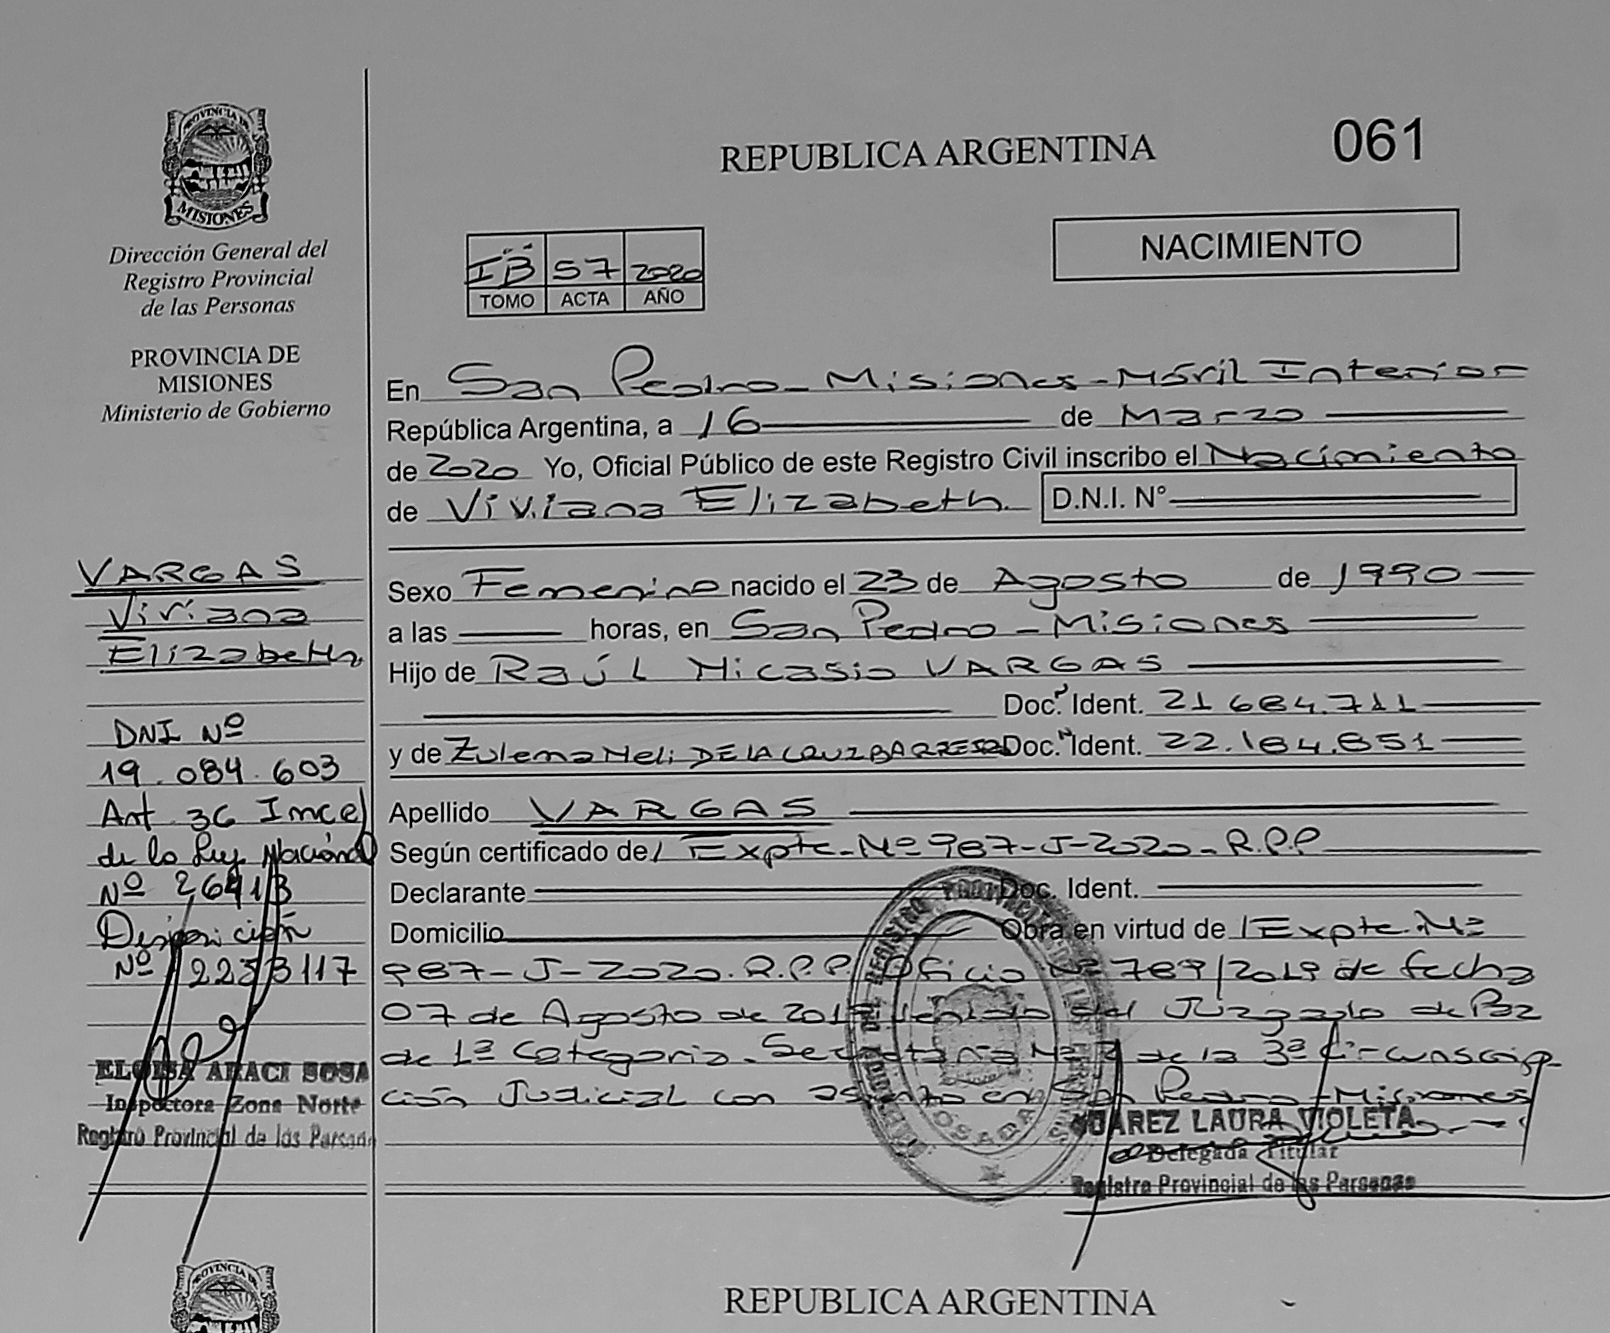 PROVINCIA DE
MISIONES
Dirección General del
Registro Provincial
de las Personas
PROVINCIA DE
MISIONES
Ministerio de Gobierno
VARGAS
Viviana
Elizabeth
DNI Nº
19.084.603
Art 36 Inc e)
de la Ley Nacional
Nº 26413
Disposición
Nº 2283117
ELOISA ARACI SOSA
Inspectora Zona Norte
Registro Provincial de las Person
REPUBLICA ARGENTINA
061
NACIMIENTO
IB 57 2020
TOMO ACTA AÑO
En San Pedro - Misiones - Móvil Interior
República Argentina, a 16 de Marzo
de 2020 Yo, Oficial Público de este Registro Civil inscribo el Nacimiento
de Viviana Elizabeth D.N.I. N°
Sexo Femenino nacido el 23 de Agosto de 1990
a las horas, en San Pedro - Misiones
Hijo de Raúl Nicasio VARGAS
Doc. Ident. 21 684.711
y de Zulema Neli DE LA CRUZ BARRETO Doc. Ident. 22.184.851
Apellido VARGAS
Según certificado de Expte. Nº 987-J-2020-R.P.P
Declarante Doc. Ident.
Domicilio Obra en virtud de Expte. Nº
987-J-2020.R.P.P. Oficio Nº 789/2019 de fecha
07 de Agosto de 2019 del Juzgado de Paz
de 1ª Categoria. Secretaria de la 3ª Circunscrip-
ción Judicial con asiento en San Pedro - Misiones
SUAREZ LAURA VIOLETA
Delegada Titular
Registro Provincial de las Personas
POSADAS
PROVINCIA DE
REPUBLICA ARGENTINA